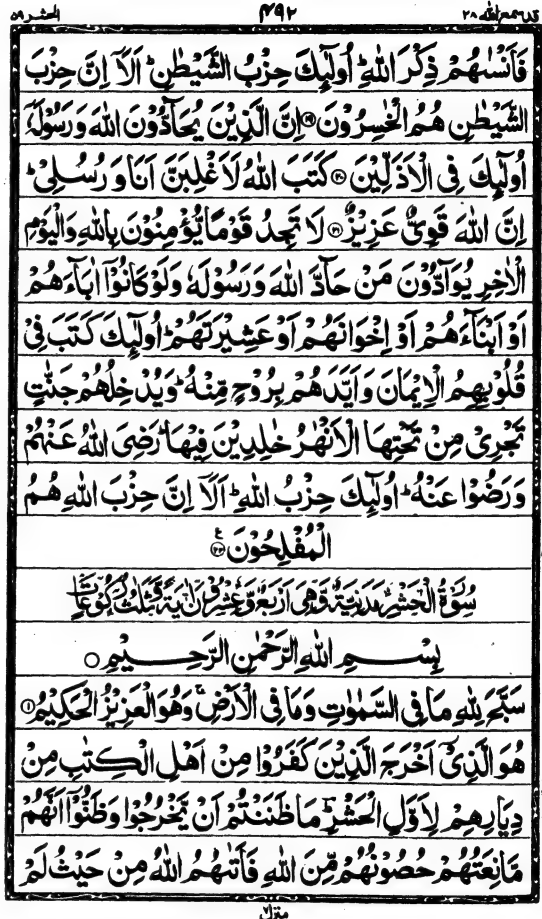 الحشر ٥٩ ٤٩٢ قد سمع الله ٢٨
فَاَنْسٰىهُمْ ذِكْرَ اللّٰهِ ؕ اُولٰٓئِكَ حِزْبُ الشَّيْطٰنِ ؕ اَلَاۤ اِنَّ حِزْبَ
الشَّيْطٰنِ هُمُ الْخٰسِرُوْنَ ۝۱۹ اِنَّ الَّذِيْنَ يُحَآدُّوْنَ اللّٰهَ وَرَسُوْلَهٗۤ
اُولٰٓئِكَ فِى الْاَذَلِّيْنَ ۝۲۰ كَتَبَ اللّٰهُ لَاَغْلِبَنَّ اَنَا وَرُسُلِىْ ؕ
اِنَّ اللّٰهَ قَوِىٌّ عَزِيْزٌ ۝۲۱ لَا تَجِدُ قَوْمًا يُّؤْمِنُوْنَ بِاللّٰهِ وَالْيَوْمِ
الْاٰخِرِ يُوَآدُّوْنَ مَنْ حَآدَّ اللّٰهَ وَرَسُوْلَهٗ وَلَوْ كَانُوْۤا اٰبَآءَهُمْ
اَوْ اَبْنَآءَهُمْ اَوْ اِخْوَانَهُمْ اَوْ عَشِيْرَتَهُمْ ؕ اُولٰٓئِكَ كَتَبَ فِىْ
قُلُوْبِهِمُ الْاِيْمَانَ وَاَيَّدَهُمْ بِرُوْحٍ مِّنْهُ ؕ وَيُدْخِلُهُمْ جَنّٰتٍ
تَجْرِىْ مِنْ تَحْتِهَا الْاَنْهٰرُ خٰلِدِيْنَ فِيْهَا ؕ رَضِىَ اللّٰهُ عَنْهُمْ
وَرَضُوْا عَنْهُ ؕ اُولٰٓئِكَ حِزْبُ اللّٰهِ ؕ اَلَاۤ اِنَّ حِزْبَ اللّٰهِ هُمُ
الْمُفْلِحُوْنَ ۝۲۲ ع
سُوْرَةُ الْحَشْرِ مَدَنِيَّةٌ وَّهِىَ اَرْبَعٌ وَّعِشْرُوْنَ اٰيَةً وَّثَلٰثُ رُكُوْعَاتٍ
بِسْمِ اللّٰهِ الرَّحْمٰنِ الرَّحِيْمِ ۝
سَبَّحَ لِلّٰهِ مَا فِى السَّمٰوٰتِ وَمَا فِى الْاَرْضِ ۚ وَهُوَ الْعَزِيْزُ الْحَكِيْمُ ۝۱
هُوَ الَّذِىْۤ اَخْرَجَ الَّذِيْنَ كَفَرُوْا مِنْ اَهْلِ الْكِتٰبِ مِنْ
دِيَارِهِمْ لِاَوَّلِ الْحَشْرِ ؕ مَا ظَنَنْتُمْ اَنْ يَّخْرُجُوْا وَظَنُّوْۤا اَنَّهُمْ
مَّانِعَتُهُمْ حُصُوْنُهُمْ مِّنَ اللّٰهِ فَاَتٰىهُمُ اللّٰهُ مِنْ حَيْثُ لَمْ
منزل ٧